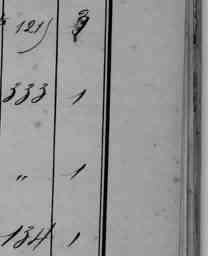 121) 3
333 1
" 1
134 1